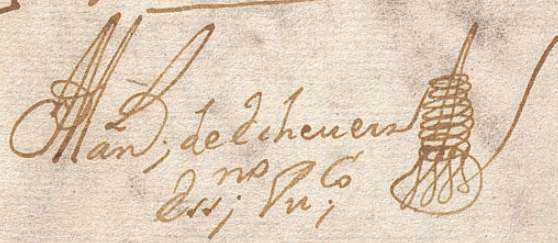 Man; de Echeuers
Ess;no Pu;co